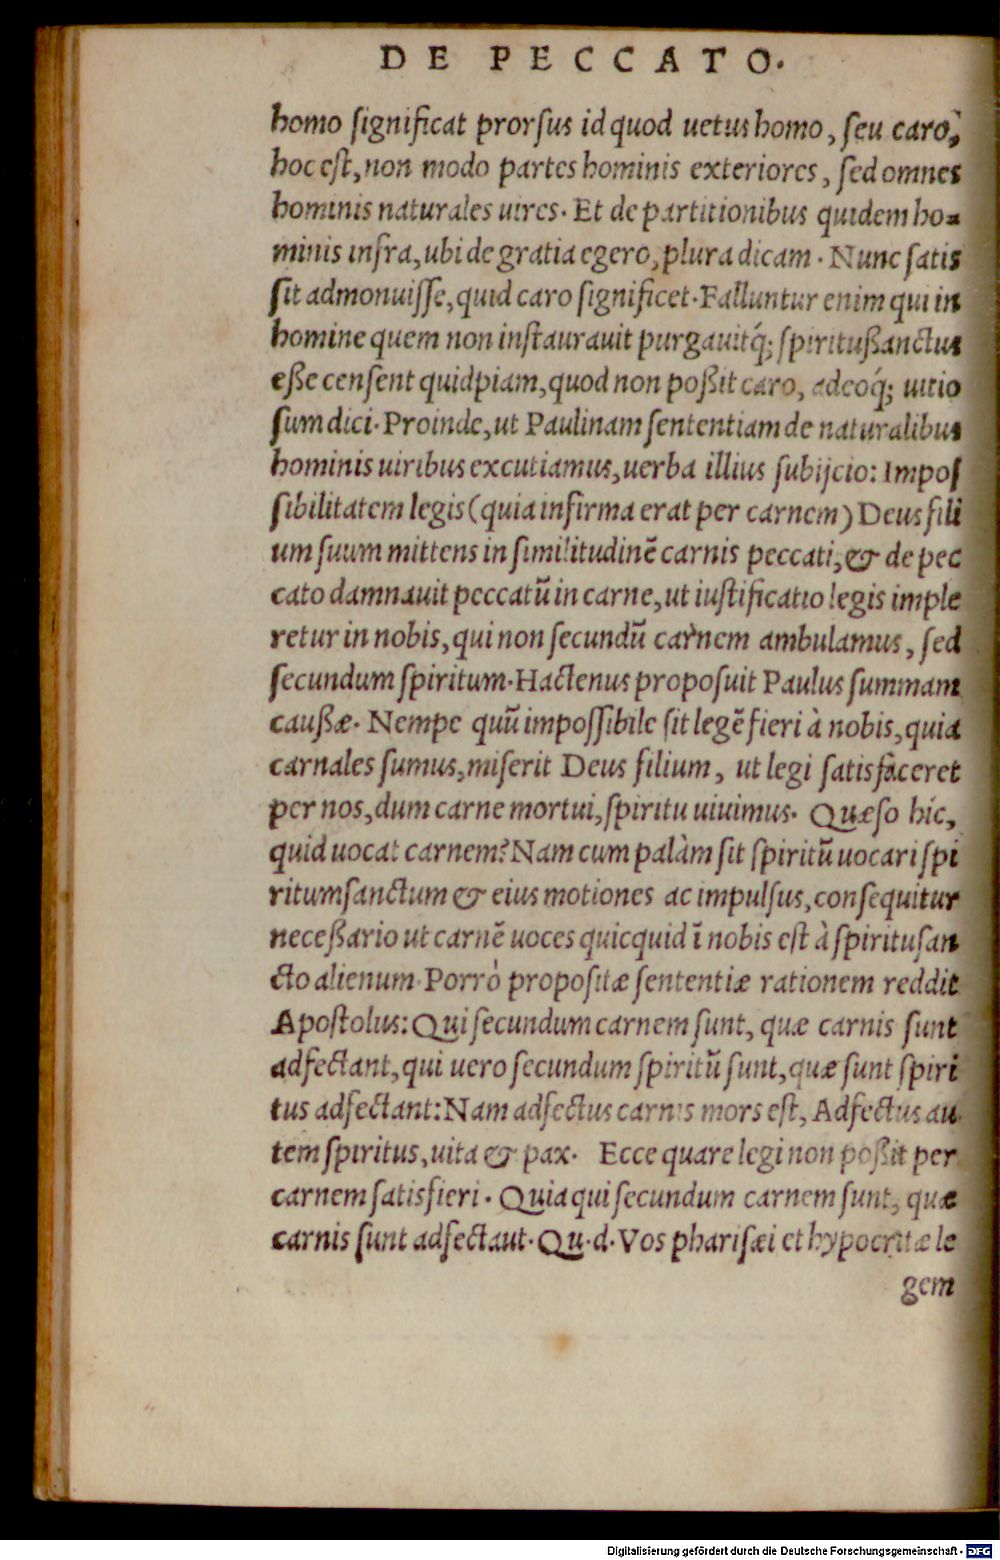 DE PECCATO.
homo ſignificat prorſus id quod uetus homo, ſeu caro,
hoc eſt, non modo partes hominis exteriores, ſed omnes
hominis naturales uires. Et de partitionibus quidem ho-
minis infra, ubi de gratia egero, plura dicam. Nunc ſatis
ſit admonuiſſe, quid caro ſignificet. Falluntur enim qui in
homine quem non inſtaurauit purgauitq́; ſpirituſßanctus
eße cenſent quidpiam, quod non poßit caro, adeoq́; uitio
ſum dici. Proinde, ut Paulinam ſententiam de naturalibus
hominis uiribus excutiamus, uerba illius ſubijcio: Impoſ
ſibilitatem legis (quia infirma erat per carnem) Deus fili
um ſuum mittens in ſimilitudinē carnis peccati, & de pec
cato damnauit peccatū in carne, ut iuſtificatio legis imple
retur in nobis, qui non ſecundū carnem ambulamus, ſed
ſecundum ſpiritum. Hactenus propoſuit Paulus ſummam
caußæ. Nempe quū impoſſibile ſit legē fieri à nobis, quia
carnales ſumus, miſerit Deus filium, ut legi ſatisfaceret
per nos, dum carne mortui, ſpiritu uiuimus. Quæſo hic,
quid uocat carnem? Nam cum palàm ſit ſpiritū uocari ſpi
ritumſanctum & eius motiones ac impulſus, conſequitur
neceßario ut carnē uoces quicquid ī nobis eſt à ſpirituſan
cto alienum. Porrò propoſitæ ſententiæ rationem reddit
Apoſtolus: Qui ſecundum carnem ſunt, quæ carnis ſunt
adfectant, qui uero ſecundum ſpiritū ſunt, quæ ſunt ſpiri
tus adfectant: Nam adfectus carnis mors eſt, Adfectus au
tem ſpiritus, uita & pax. Ecce quare legi non poßit per
carnem ſatisfieri. Quia qui ſecundum carnem ſunt, quæ
carnis ſunt adfectaut. Qu. d. Vos phariſæi et hypocritæ le
gem
Digitalisierung gefördert durch die Deutsche Forschungsgemeinschaft - DFG